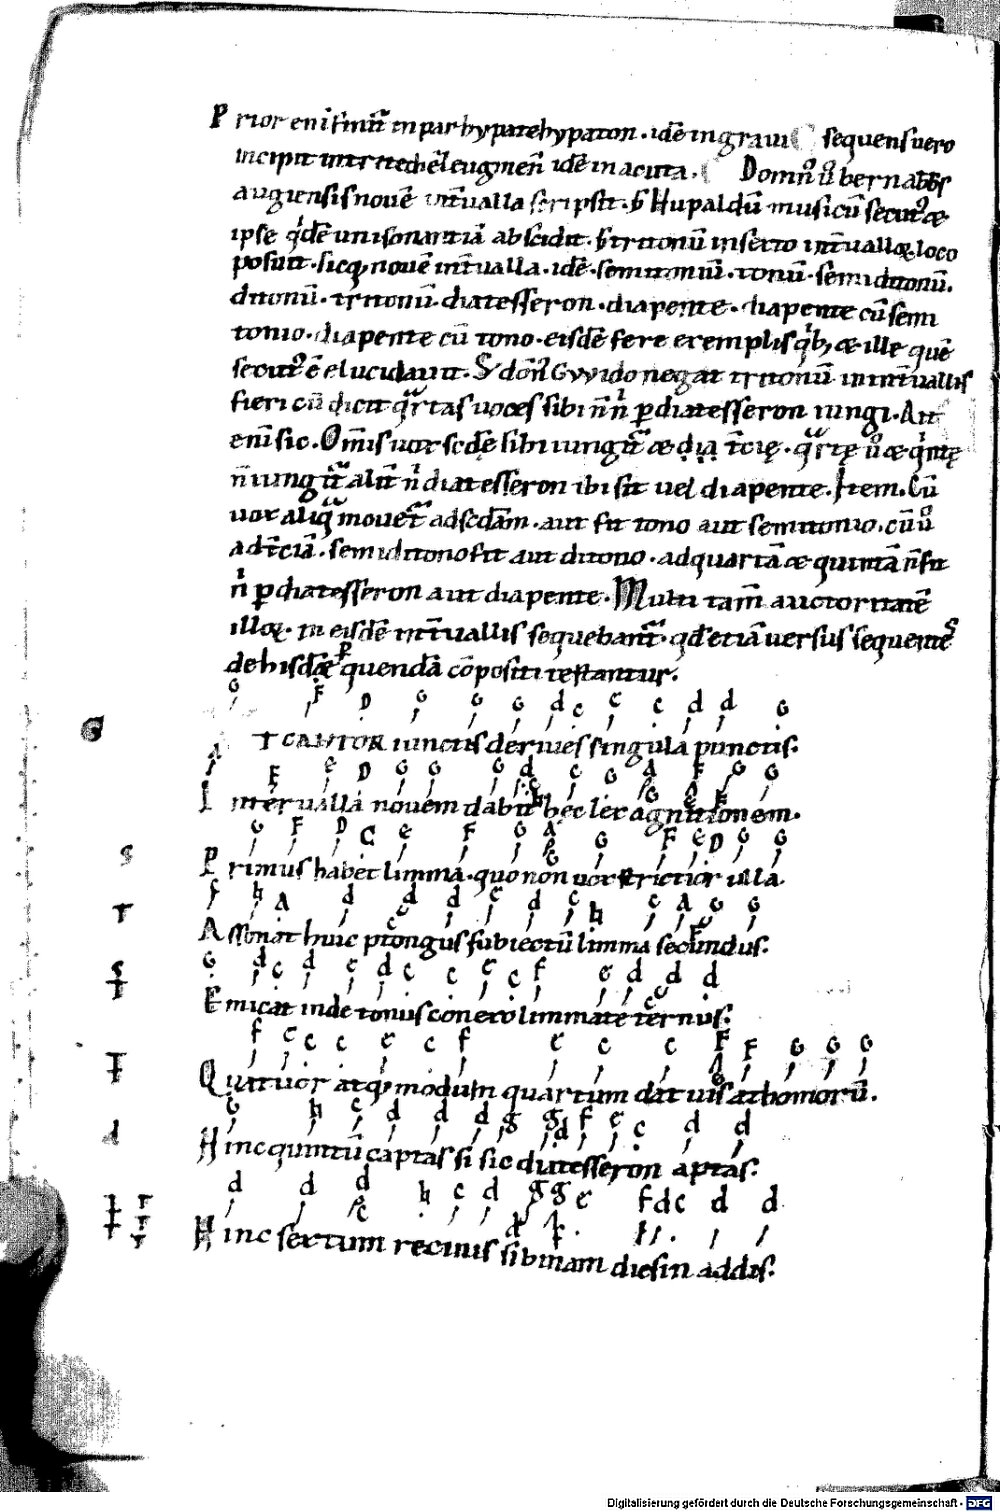 Prior eni͂ fini͂t in parhypatehypaton · ide͂ in graui sequens uero
incipit in tritediezeugmen͂ ide͂ in acuta. Domn͂ u͂ bernardus
augiensis noue͂ int͂ualla scripsit · s͂ Hupaldu͂ musicu͂ secut᷒ æ
ipse qde͂ unisonantia͂ abscidit · s͂ tritonu͂ inserto int͂uallo loco
posuit · sicq; noue͂ int͂ualla · ide͂ · semitoniu͂ · tonu͂ · semiditonu͂ ·
ditonu͂ · tritonu͂ diatesseron · diapente · diapente cu͂ semi
tonio · diapente cu͂ tono · eisde͂ fere exemplis qb; æ ille que͂
secut᷒ e͂ elucidauit. S; don͂ Gvvido negat tritonu͂ in int͂uallis
fieri cu͂ dicit qrtas uoces sibi n͂ n͂ p diatesseron iungi. Ait
eni͂ sic. Om͂is uox scde͂ sibi iungit͂ æ dia t͂cię · qrtę u͂ æ qntę
n͂ iungit͂ alit͂ n͂ diatesseron ibi sit uel diapente. Item. Cu͂
uox aliq mouet͂ ad scda͂m · aut fit tono aut semitonio · cu͂ u͂
ad t͂cia͂ · semiditono fit aut ditono · ad quarta͂ æ quinta͂ n͂ fit
n͂ p diatesseron aut diapente. Multi tam͂ auctoritate͂
illoꝝ · in eisde͂ int͂uallis sequebant͂ · qd etia͂ uersus sequentes
de hisde͂ p quenda͂ co͂positi testantur.
G F D G G G d c c c d d G
G
AT CANTOR iunctis der uies singula punctis:
A F e D G G G d c G A F G G
Interualla nouem dabit hec lex agnitionem.
G F D C e F G A G F e D G G
S
Primus habet limma · quo non uox strictior ulla.
f h A d d d e d c h c A G G
T
Assonat huic ptongus subiectu͂ limma secundus:
G d c d e d c c e c f e d d d
S T
Emicat inde tonus conexo limmate ternus:
f e c c e c f e c c F F G G G
T
Quatuor atq; modum quartum dat uis athomoru͂.
G h c d d d g g d f e c d d
d
Hinc quintu͂ captas si sic diatesseron aptas:
d d d c h c d g g e f d c d d
T T T
Hinc sextum recinis si binam diesin addis:
Digitalisierung gefördert durch die Deutsche Forschungsgemeinschaft - DFG